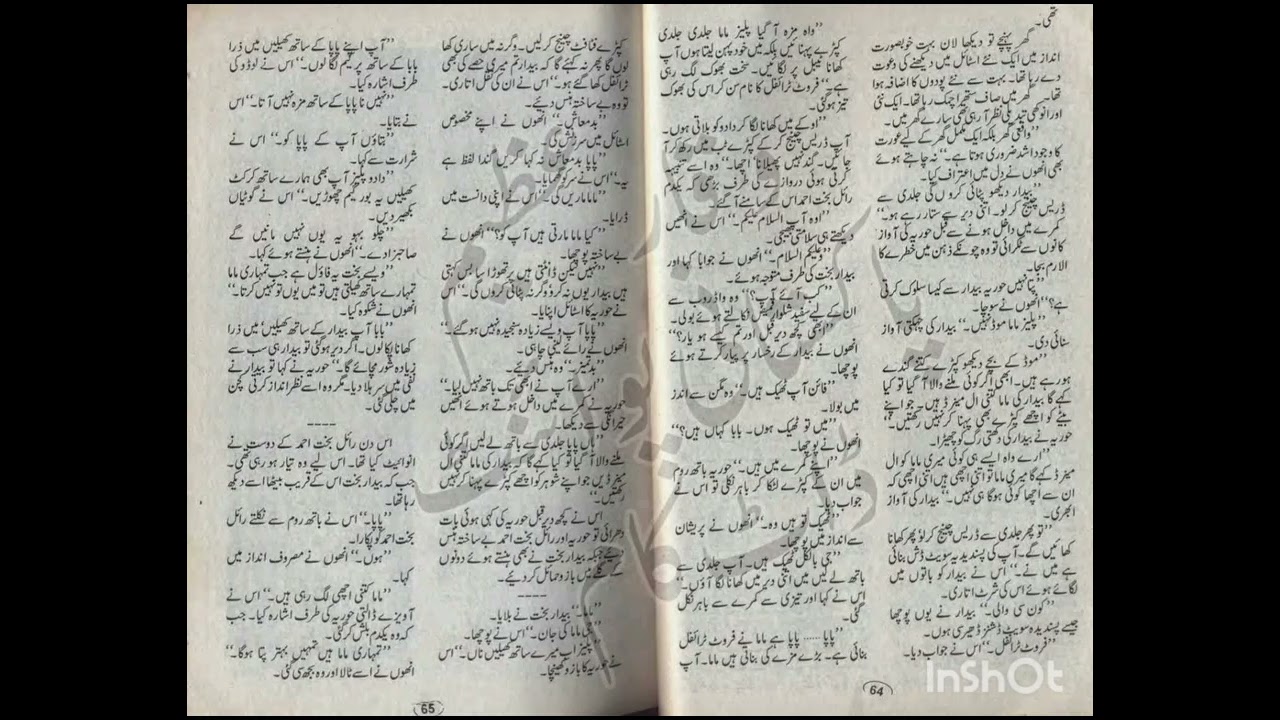 تھی۔
گھر پہنچے تو دیکھا لان بہت خوبصورت
انداز میں ایک نئے اسٹائل میں دیکھنے کی دعوت
دے رہا تھا۔ بہت سے نئے پودوں کا اضافہ ہوا
تھا۔ گھر میں صاف ستھرا چمک رہا تھا۔ ایک نئی
اور انوکھی تبدیلی نظر آ رہی تھی سارے گھر میں۔
”واقعی گھر بلکہ ایک مکمل گھر کے لیے عورت
کا وجود اشد ضروری ہوتا ہے۔“ نہ چاہتے ہوئے
بھی انھوں نے دل میں اعتراف کیا۔
”بیدار دیکھو پٹائی کروں گی جلدی سے
ڈریس چینج کر لو۔ اتنی دیر سے ستا رہے ہو۔“
کمرے میں داخل ہونے سے قبل حوریہ کی آواز
کانوں سے ٹکرائی تو وہ چونکے ذہن میں خطرے کا
الارم بجا۔
”پتا نہیں حوریہ بیدار سے کیسا سلوک کرتی
ہے؟“ انھوں نے سوچا۔
”پلیز ماما موڈ نہیں۔“ بیدار کی چہکتی آواز
سنائی دی۔
”موڈ کے بچے دیکھو کپڑے کتنے گندے
ہو رہے ہیں۔ ابھی اگر کوئی ملنے والا آ گیا تو کیا
کہے گا بیدار کی ماما کتنی ال مینرڈ ہیں۔ جو اپنے
بیٹے کو اچھے کپڑے بھی پہنا کر نہیں رکھتیں۔“
حوریہ نے بیدار کی دکھتی رگ کو چھیڑا۔
”ارے واہ ایسے ہی کوئی میری ماما کو ال
مینرڈ کہے گا میری ماما تو اتنی اچھی ہیں اتنی اچھی کہ
ان سے اچھا کوئی ہو گا ہی نہیں۔“ بیدار کی آواز
ابھری۔
”تو پھر جلدی سے ڈریس چینج کر لو پھر کھانا
کھائیں گے۔ آپ کی پسندیدہ سویٹ ڈش بنائی
ہے میں نے۔“ اس نے بیدار کو باتوں میں
لگائے ہوئے اس کی شرٹ اتاری۔
”کون سی والی۔“ بیدار نے یوں پوچھا
جیسے پسندیدہ سویٹ ڈشز ڈھیر سی ہوں۔
”فروٹ ٹرائفل۔“ اس نے جواب دیا۔
”واہ مزہ آ گیا پلیز ماما جلدی جلدی
کپڑے پہنائیں بلکہ میں خود پہن لیتا ہوں آپ
کھانا ٹیبل پر لگائیں۔ سخت بھوک لگ رہی
ہے۔“ فروٹ ٹرائفل کا نام سن کر اس کی بھوک
تیز ہو گئی۔
”اوکے میں کھانا لگا کر دادو کو بلاتی ہوں۔
آپ ڈریس چینج کر کے کپڑے ٹب میں رکھ کر آ
جائیں۔ گند نہیں پھیلانا‘ اچھا۔“ وہ اسے تنبیہہ
کرتی ہوئی دروازے کی طرف بڑھی کہ یکدم
رائل بخت احمد اس کے سامنے آ گئے۔
”اوہ آپ السلام علیکم۔“ اس نے انھیں
دیکھتے ہی سلامتی بھیجی۔
”وعلیکم السلام۔“ انھوں نے جوابا کہا اور
بیدار بخت کی طرف متوجہ ہوئے۔
”کب آئے آپ؟“ وہ وارڈروب سے
ان کے لیے سفید شلوار قمیض نکالتے ہوئے بولی۔
”ابھی کچھ دیر قبل اور تم کیسے ہو یار؟“
انھوں نے بیدار کے رخسار پر پیار کرتے ہوئے
پوچھا۔
”فائن آپ ٹھیک ہیں۔“ وہ مگن سے انداز
میں بولا۔
”میں تو ٹھیک ہوں۔ بابا کہاں ہیں؟“
انھوں نے پوچھا۔
”اپنے کمرے میں ہیں۔“ حوریہ باتھ روم
میں ان کے کپڑے لٹکا کر باہر نکلی تو اس نے
جواب دیا۔
”ٹھیک تو ہیں وہ۔“ انھوں نے پریشان
سے انداز میں پوچھا۔
”جی بالکل ٹھیک ہیں۔ آپ جلدی سے
باتھ لے لیں میں اتنی دیر میں کھانا لگا آؤں۔“
اس نے کہا اور تیزی سے کمرے سے باہر نکل
گئی۔
”پاپا ...... پاپا ہے ماما نے فروٹ ٹرائفل
بنائی ہے۔ بڑے مزے کی بناتی ہیں ماما۔ آپ
64
کپڑے فٹافٹ چینج کر لیں۔ وگرنہ میں ساری کھا
لوں گا پھر نہ کہئے گا کہ بیدار تم میری حصے کی بھی
ٹرائفل کھا گئے ہو۔“ اس نے ان کی نقل اتاری۔
تو وہ بے ساختہ ہنس دیئے۔
”بدمعاش۔“ انھوں نے اپنے مخصوص
اسٹائل میں سرزنش کی۔
”پاپا بدمعاش نہ کہا کریں گندا لفظ ہے
یہ۔“ اس نے سر کو گھمایا۔
”ماما ماریں گی۔“ اس نے اپنی دانست میں
ڈرایا۔
”کیا ماما مارتی ہیں آپ کو؟“ انھوں نے
بے ساختہ پوچھا۔
”نہیں لیکن ڈانٹتی ہیں پر تھوڑا سا بس کہتی
ہیں بیدار یوں نہ کرو وگرنہ پٹائی کروں گی۔“ اس
نے حوریہ کا اسٹائل اپنایا۔
”پاپا آپ ویسے زیادہ سنجیدہ نہیں ہو گئے۔“
انھوں نے رائے لینی چاہی۔
”بدتمیز۔“ وہ ہنس دیئے۔
”ارے آپ نے ابھی تک باتھ نہیں لیا۔“
حوریہ نے کمرے میں داخل ہوتے ہوئے انھیں
حیرانگی سے دیکھا۔
”ہاں پاپا جلدی سے باتھ لے لیں اگر کوئی
ملنے والا آ گیا تو کیا کہے گا کہ بیدار کی ماما کتنی ال
مینرڈ ہیں جو اپنے شوہر کو اچھے کپڑے پہنا کر نہیں
رکھتیں۔“
اس نے کچھ دیر قبل حوریہ کی کہی ہوئی بات
دھرائی تو حوریہ اور رائل بخت احمد بے ساختہ ہنس
دیئے جبکہ بیدار بخت نے بھی ہنستے ہوئے دونوں
کے گلے میں بازو حمائل کر دیئے۔
----
”ماما۔“ بیدار بخت نے بلایا۔
”جی ماما کی جان۔“ اس نے پوچھا۔
”پلیز اب میرے ساتھ کھیلیں ناں۔“ اس
نے حوریہ کا بازو کھینچا۔
”آپ اپنے پاپا کے ساتھ کھیلیں میں ذرا
بابا کے ساتھ پر گیم لگا لوں۔“ اس نے لوڈو کی
طرف اشارہ کیا۔
”نہیں نا پاپا کے ساتھ مزہ نہیں آتا۔“ اس
نے بتایا۔
”بتاؤں آپ کے پاپا کو۔“ اس نے
شرارت سے کہا۔
”دادو پلیز آپ بھی ہمارے ساتھ کرکٹ
کھیلیں یہ بور گیم چھوڑیں۔“ اس نے گوٹیاں
بکھیر دیں۔
”چلو بہو یہ یوں نہیں مانیں گے
صاحبزادے۔“ انھوں نے ہنستے ہوئے کہا۔
”ویسے بخت یہ فاؤل ہے جب تمہاری ماما
تمہارے ساتھ کھیلتی ہیں تو میں یوں تو نہیں کرتا۔“
انھوں نے شکوہ کیا۔
”بابا آپ بیدار کے ساتھ کھیلیں‘ میں ذرا
کھانا لگا لوں۔ اگر دیر ہو گئی تو بیدار ہی سب سے
زیادہ شور مچائے گا۔“ حوریہ نے کہا تو بیدار نے
نفی میں سر ہلا دیا۔ مگر وہ اسے نظر انداز کرتی کچن
میں چلی گئی۔
----
اس دن رائل بخت احمد کے دوست نے
انوائیٹ کیا تھا۔ اس لیے وہ تیار ہو رہی تھی۔
جب کہ بیدار بخت اس کے قریب بیٹھا اسے دیکھ
رہا تھا۔
”پاپا۔“ اس نے باتھ روم سے نکلتے رائل
بخت احمد کو پکارا۔
”ہوں۔“ انھوں نے مصروف انداز میں
کہا۔
”ماما کتنی اچھی لگ رہی ہیں۔“ اس نے
آویزے ڈالتی حوریہ کی طرف اشارہ کیا۔ جب
کہ وہ یکدم بلش کر گئی۔
”تمہاری ماما ہیں تمہیں بہتر پتا ہو گا۔“
انھوں نے اسے ٹالا اور وہ بجھ سی گئی۔
65
InShOt